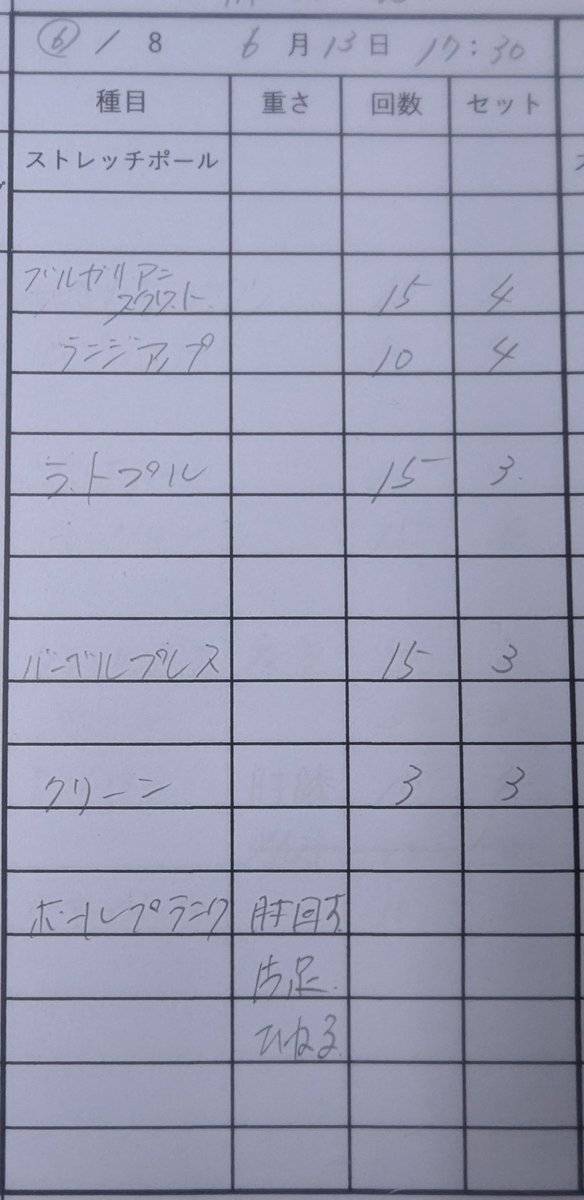 6 / 8 6 月 13 日 17:30
種目 重さ 回数 セット
ストレッチポール
ブルガリアン
スクワット 15 4
ランジアップ 10 4
ラットプル 15 3
バーベルプレス 15 3
クリーン 3 3
ボールプランク 肘回す
片足
ひねる